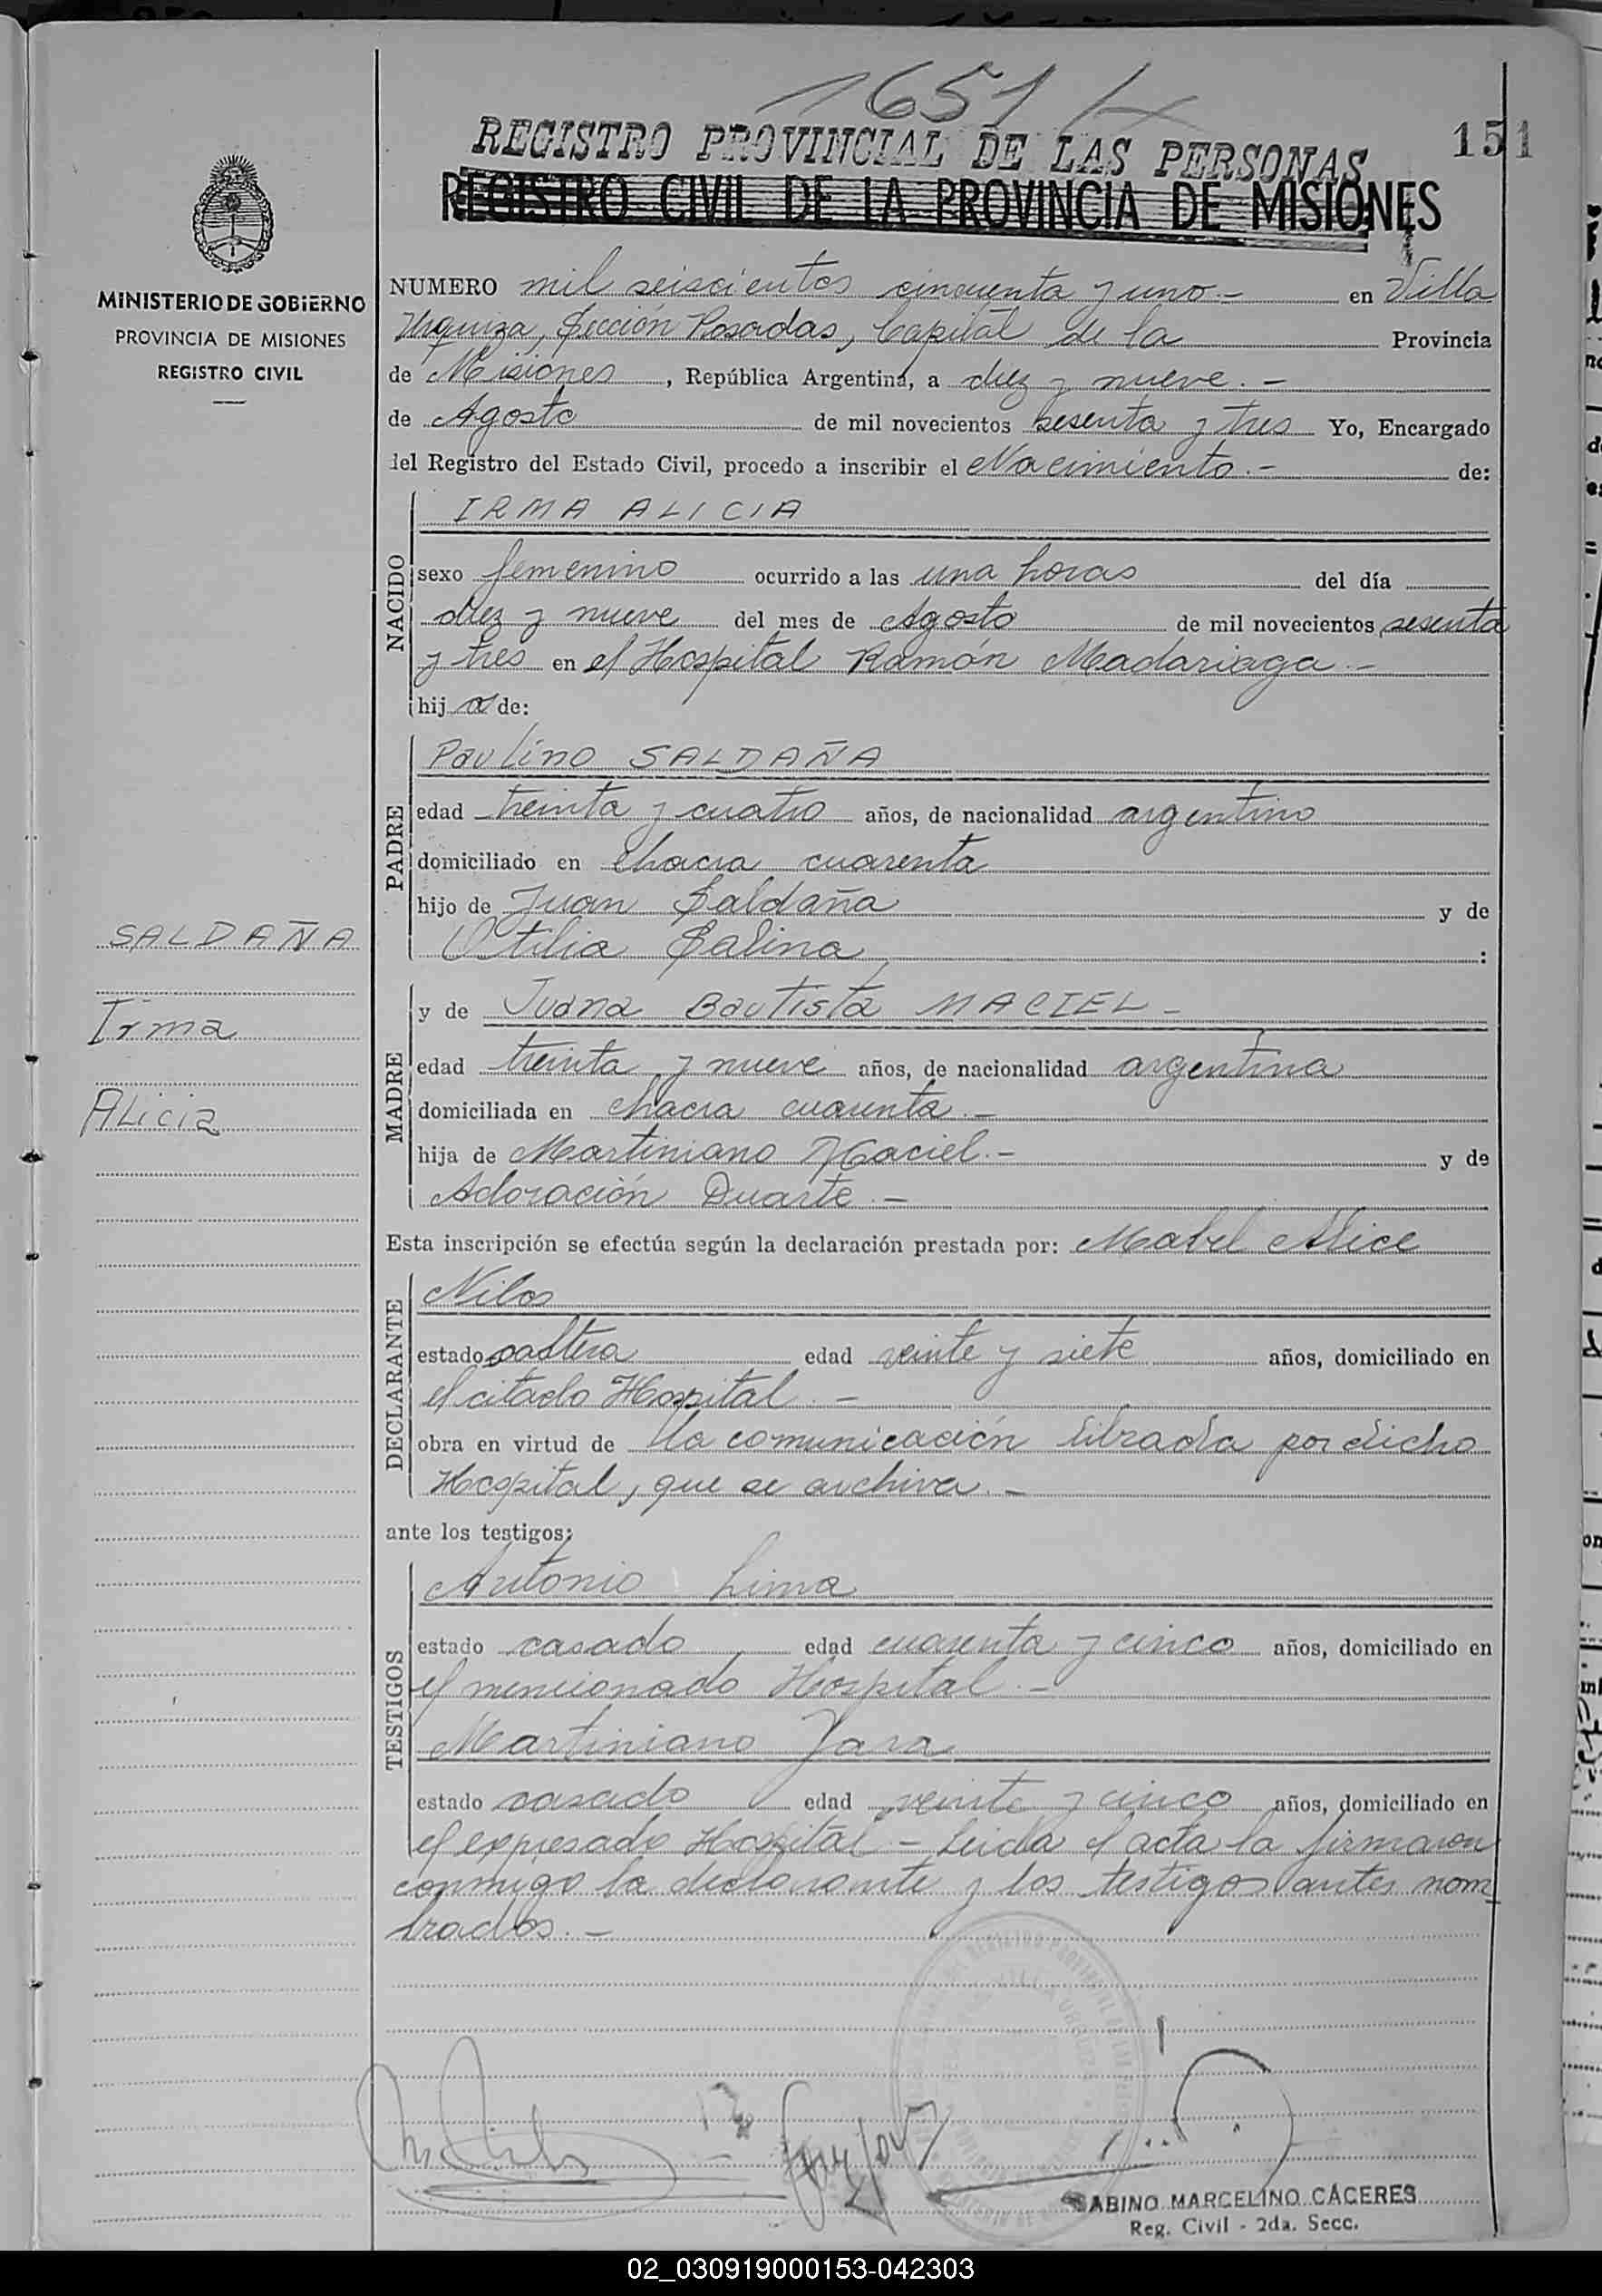 1651
151
REGISTRO PROVINCIAL DE LAS PERSONAS
REGISTRO CIVIL DE LA PROVINCIA DE MISIONES
MINISTERIO DE GOBIERNO
PROVINCIA DE MISIONES
REGISTRO CIVIL
SALDAÑA
Irma
Alicia
NUMERO mil seiscientos cincuenta y uno.- en Villa
Urquiza, Sección Posadas, Capital de la Provincia
de Misiones, República Argentina, a diez y nueve.-
de Agosto de mil novecientos sesenta y tres Yo, Encargado
del Registro del Estado Civil, procedo a inscribir el Nacimiento.- de:
NACIDO
IRMA ALICIA
sexo femenino ocurrido a las una horas del día
diez y nueve del mes de Agosto de mil novecientos sesenta
y tres en el Hospital Ramón Madariaga.-
hij a de:
PADRE
Paulino SALDAÑA
edad treinta y cuatro años, de nacionalidad argentino
domiciliado en chacra cuarenta
hijo de Juan Saldaña y de
Otilia Salina :
MADRE
y de Juana Bautista MACIEL -
edad treinta y nueve años, de nacionalidad argentina
domiciliada en chacra cuarenta.-
hija de Martiniano Maciel.- y de
Adoración Duarte.-
Esta inscripción se efectúa según la declaración prestada por: Mabel Alice
DECLARANTE
Nilos
estado soltera edad veinte y siete años, domiciliado en
el citado Hospital.-
obra en virtud de la comunicación librada por dicho
Hospital, que se archiva.-
ante los testigos:
TESTIGOS
Antonio Lima
estado casado edad cuarenta y cinco años, domiciliado en
el mencionado Hospital.-
Martiniano Jara
estado casado edad veinte y cinco años, domiciliado en
el expresado Hospital - Leida el acta la firmaron
conmigo la declarante y los testigos antes nom
brados.-
SABINO MARCELINO CÁCERES
Reg. Civil - 2da. Secc.
02_030919000153-042303